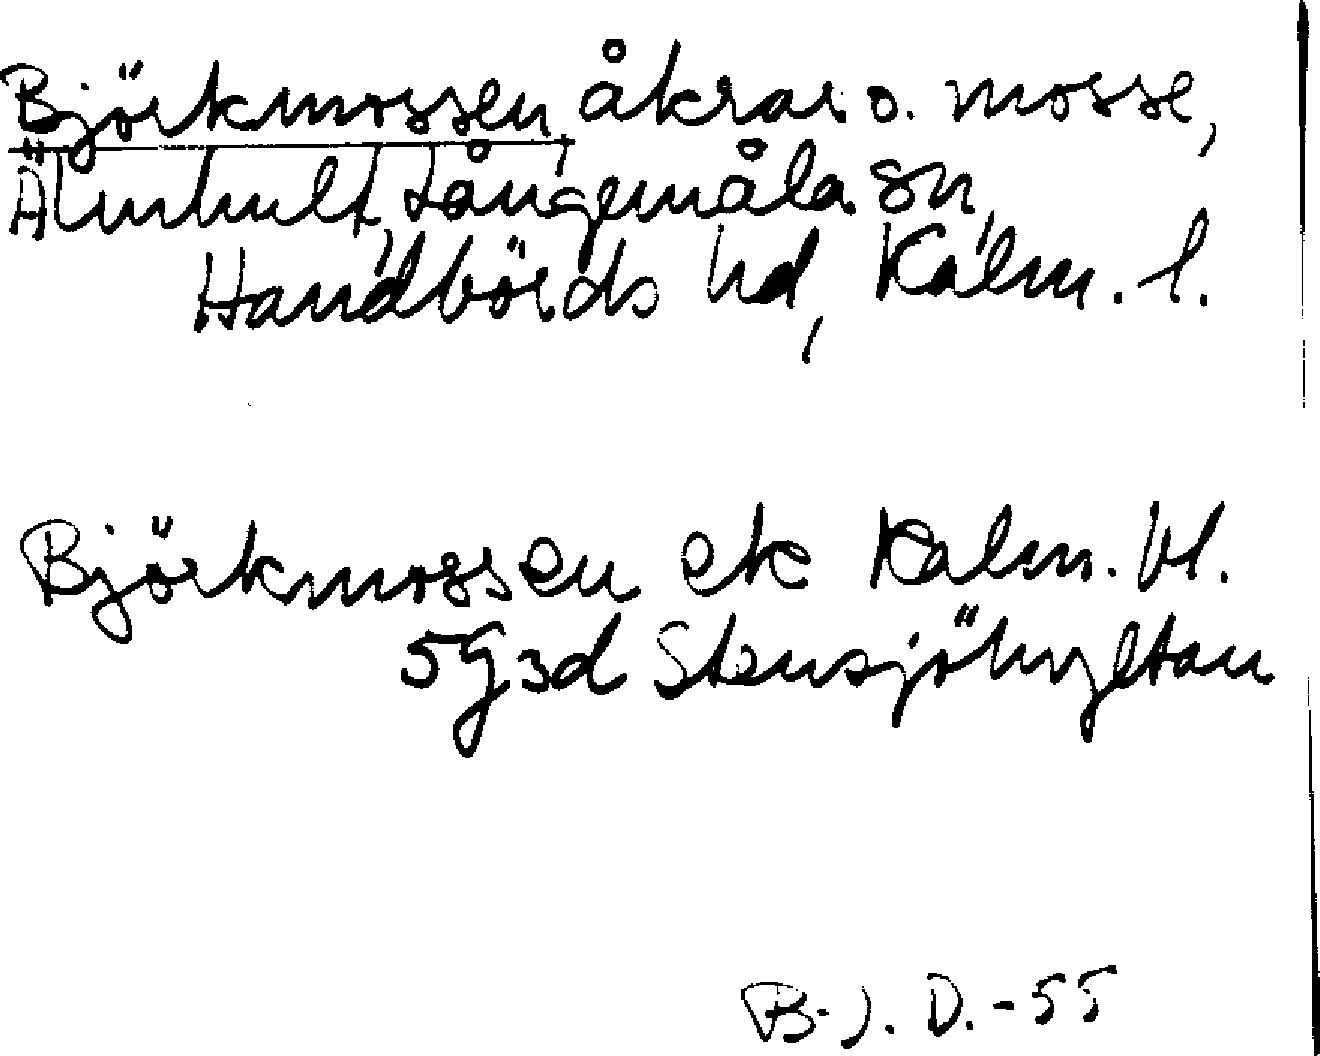 Björkmossen, åkrar o. mosse,
Älmhult, Långemåla sn,
Handbörds hd, Kalm. l.
Björkmossen ek Kalm. l.
5G3d Stensjöhyltan
B-J. D.-55